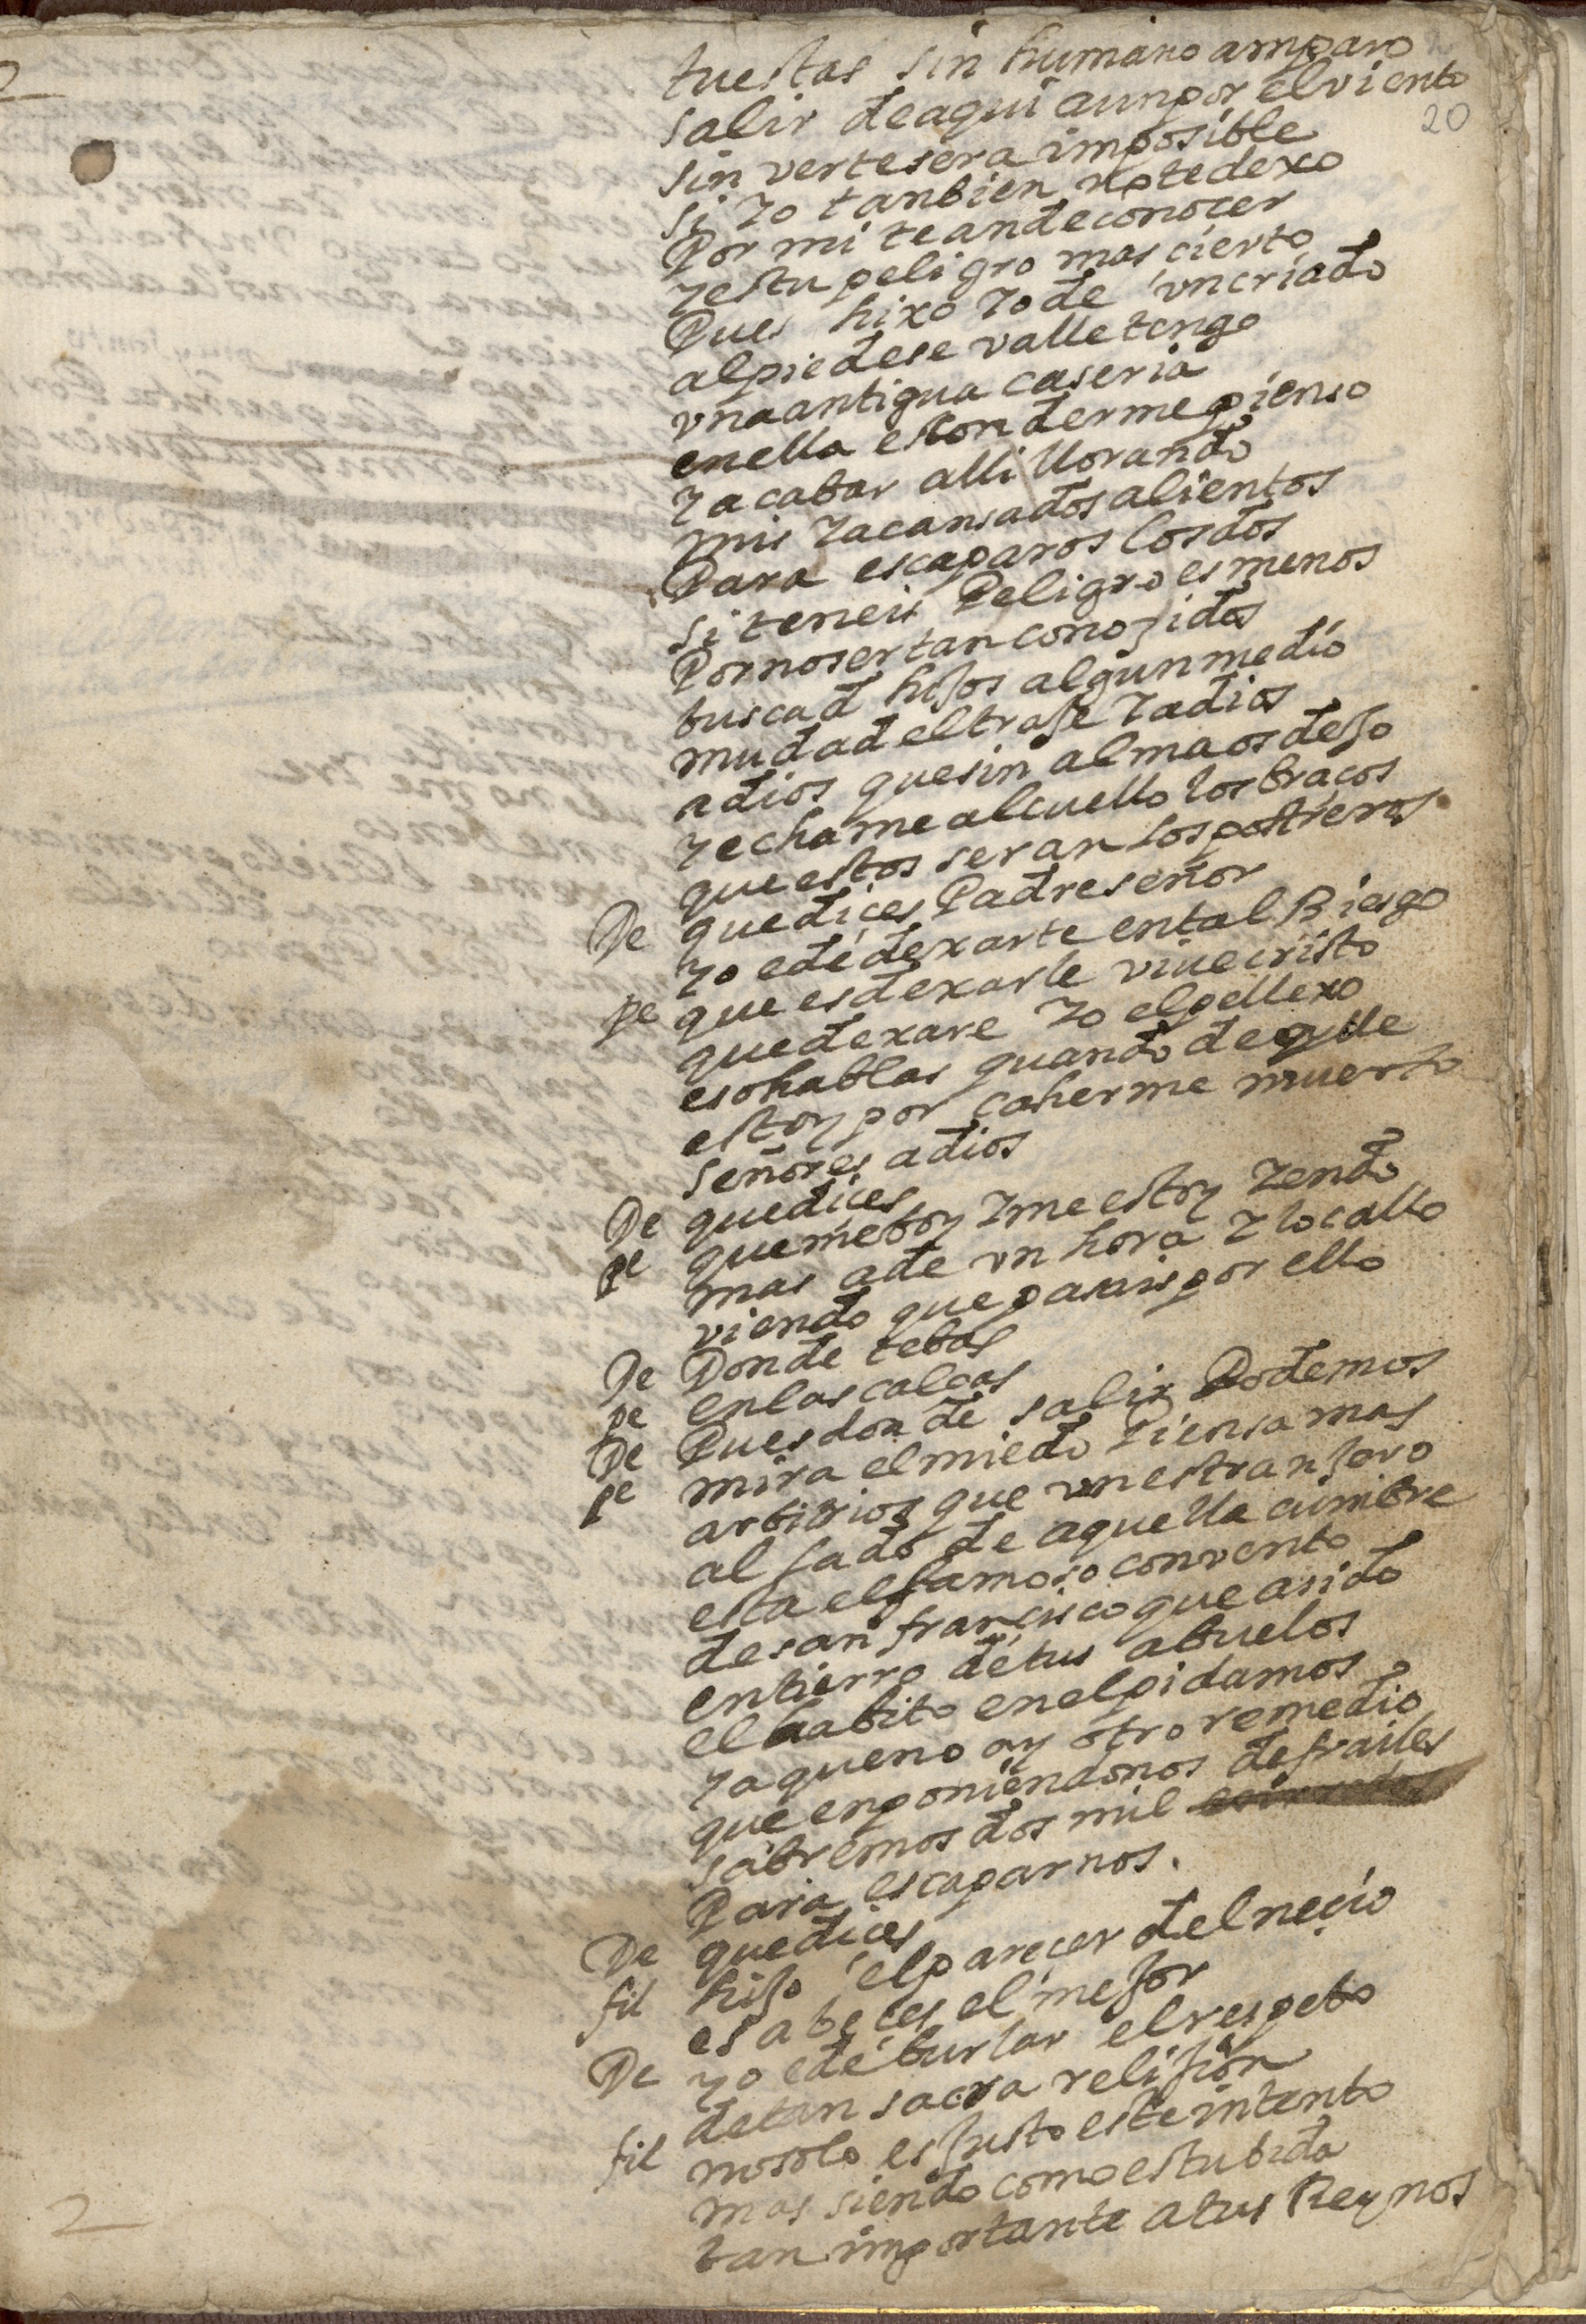 20
tu estas sin humano amparo
salir de aqui aun por el viento
sin verte sera imposible
si yo tanbien no te dexo
Por mi te an de conocer
y es tu peligro mas cierto
Pues hixo yo de un criado
al pie de se valle tengo
vna antigua caseria
en ella esconderme pienso
y acabar alli llorando
mis ya cansados alientos
Para escaparos los dos
si teneis Peligro es menos
Por no ser tan conozidos
buscad hijos algun medio
mudad el traje y adios
adios que sin alma os dejo
y echame al cuello los bracos
que estos seran los postreros
De que dices Padre señor
yo e de dexarte en tal Riesgo
pe que es dexarle viue cristo
que dexare yo el pellexo
eso hablas quando de
estoy por caherme muerto
señores adios
De que dices
pe que me boy y me estoy yendo
mas a de vn hora y lo callo
viendo que pasais por ello
De Donde te bas
pe en las calcas
De Pues donde salir Podemos
pe mira el miedo Piensa mas
arbitrios que vn estranjero
al lado de aquella cumbre
esta el famoso convento
de san francisco que a sido
entierro de tus abuelos
el habito en el pidamos
ya que no ay otro remedio
que en poniendonos de frailes
sabremos dos mil
Para escaparnos.
De que dices
fil hijo el parecer del necio
es a beces el mejor
De yo e de burlar el respeto
de tan sacra relijion
fil no solo es justo este intento
mas siendo como es tu bida
tan importante a tus Reynos
2